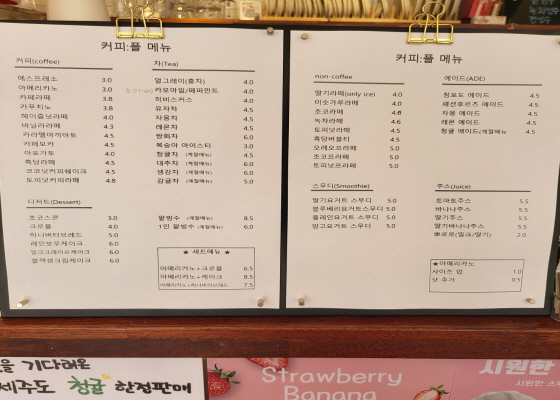 커피:플 메뉴
커피(coffee)
에스프레소 3.0
아메리카노 3.0
카페라떼 3.8
카푸치노 3.8
헤이즐넛라떼 4.0
바닐라라떼 4.3
카라멜마끼아또 4.5
카페모카 4.5
아포가토 4.0
흑당라떼 4.5
코코넛커피쉐이크 4.5
토피넛커피라떼 4.8
디저트(Dessert)
초코스콘 3.0
크로플 4.0
허니버터브레드 5.0
레인보우케이크 6.0
얼그레이드케이크 6.0
블랙생크림케이크 6.0
차(Tea)
얼그레이(홍차) 4.0
카모마일/페퍼민트 4.0
히비스커스 4.0
유자차 4.5
자몽차 4.5
레몬차 4.5
쌍화차 6.0
복숭아 아이스티 3.0
청귤차 (계절메뉴) 4.5
대추차 (계절메뉴) 6.0
생강차 (계절메뉴) 6.0
감귤차 (계절메뉴) 5.0
팥빙수 (계절메뉴) 8.5
1인 팥빙수 (계절메뉴) 6.0
★ 세트메뉴 ★
아메리카노+크로플 6.5
아메리카노+케이크 8.5
아메리카노+허니버터브레드 7.5
커피:플 메뉴
non-coffee
딸기라떼(only ice) 4.0
미숫가루라떼 4.0
초코라떼 4.8
녹차라떼 4.6
토피넛라떼 4.5
흑당버블티 4.5
오레오프라떼 5.0
초코프라떼 5.0
토피넛프라떼 5.0
스무디(Smoothie)
딸기요거트 스무디 5.0
블루베리요거트스무디 5.0
플레인요거트 스무디 5.0
망고요거트 스무디 5.0
에이드(ADE)
청포도 에이드 4.5
패션후르츠 에이드 4.5
자몽 에이드 4.5
레몬 에이드 4.5
청귤 에이드(계절메뉴 4.5
주스(Juice)
토마토주스 5.5
바나나주스 5.5
딸기주스 5.5
딸기바나나주스 5.5
뽀로로(밀크/딸기) 2.0
★아메리카노
사이즈 업 1.0
샷 추가 0.5
을 기다려온
제주도 청귤 한정판매
Strawberry
Banana
시원한
시원한 스